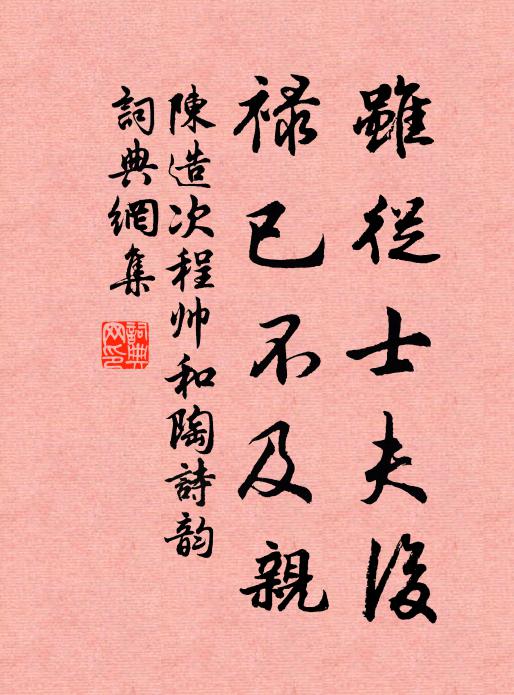 雖從士夫後
祿已不及親
陳造次程帅和陶詩韵
詞典網集
詞典网印